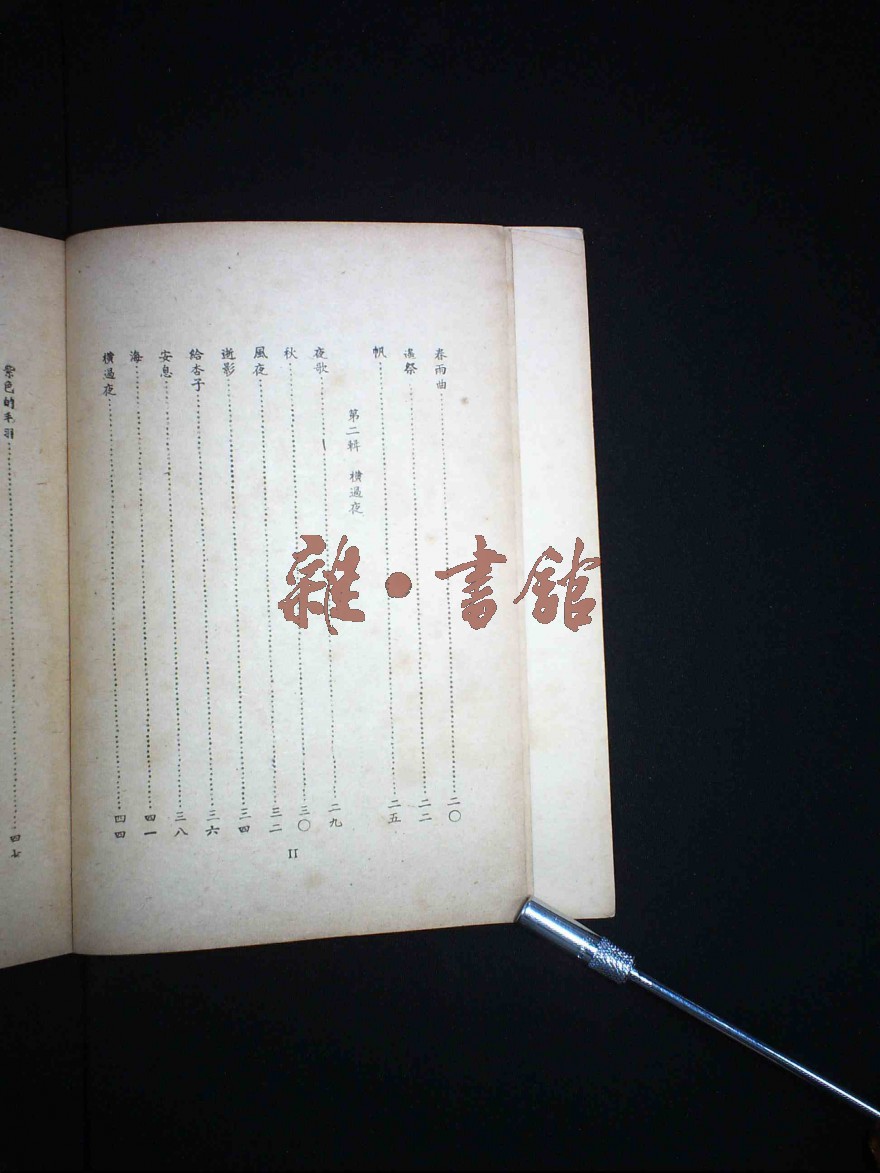 春雨曲 二〇
遙祭 二二
帆 二五
第二輯 橫過夜
夜歌 二九
秋 三〇
風夜 三二
逝影 三四
給杏子 三六
安息 三八
海 四一
橫過夜 四四
II
紫色的毛羽 四七
雜·書館